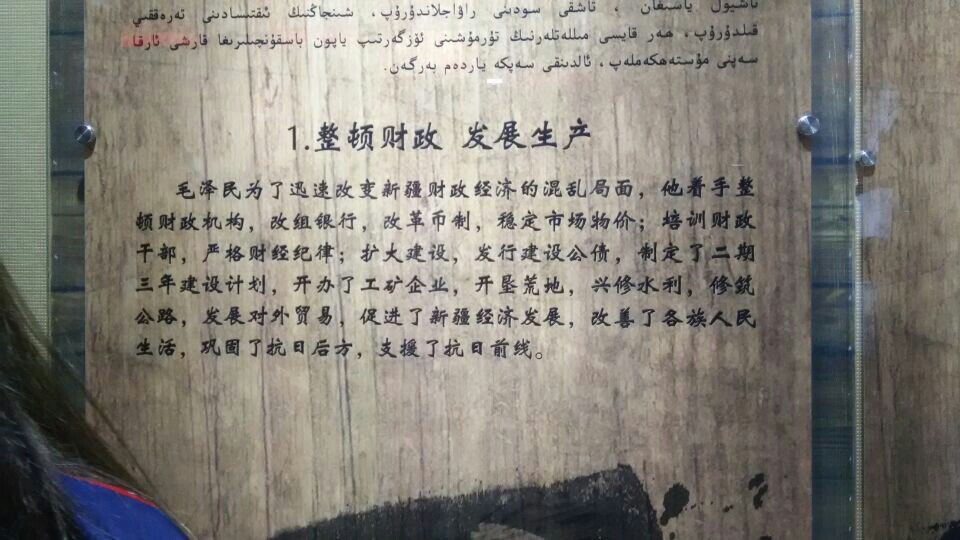 تاشيول ياسىغان ، تاشقى سودىنى راۋاجلاندۇرۇپ، شىنجاڭنىڭ ئىقتىسادىنى تەرەققىي
قىلدۇرۇپ، ھەر قايسى مىللەتلەرنىڭ تۇرمۇشىنى ئۆزگەرتىپ ياپون باسقۇنچىلىرىغا قارشى ئارقا
سەپنى مۇستەھكەملەپ ، ئالدىنقى سەپكە ياردەم بەرگەن.
1.整顿财政 发展生产
毛泽民为了迅速改变新疆财政经济的混乱局面，他着手整
顿财政机构，改组银行，改革币制，稳定市场物价；培训财政
干部，严格财经纪律；扩大建设，发行建设公债，制定了二期
三年建设计划，开办了工矿企业，开垦荒地，兴修水利，修筑
公路，发展对外贸易，促进了新疆经济发展，改善了各族人民
生活，巩固了抗日后方，支援了抗日前线。